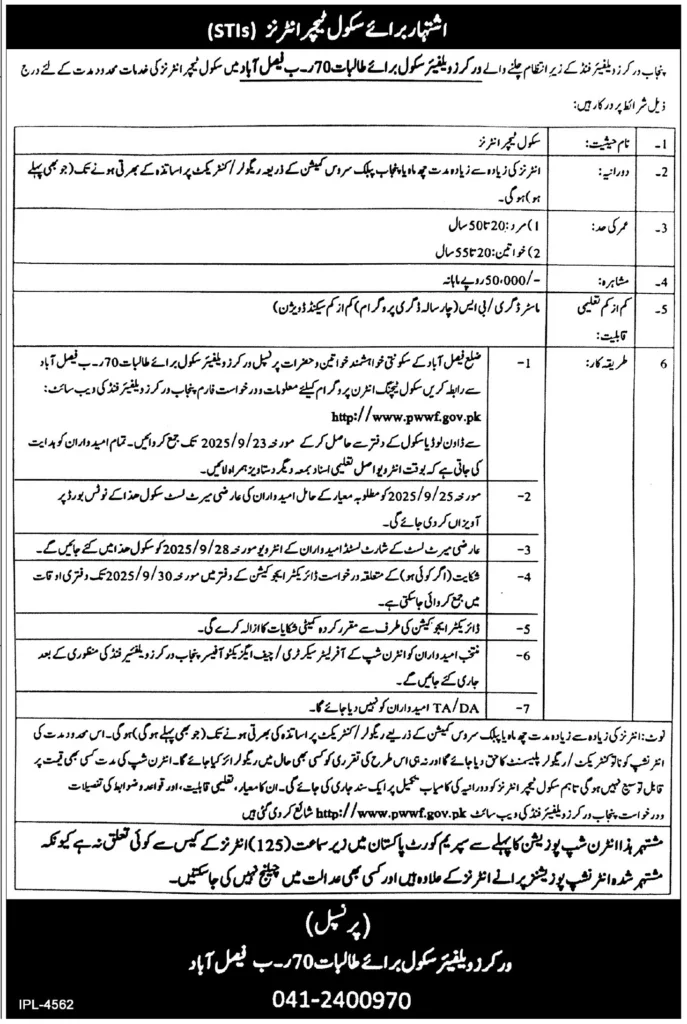 اشتہار برائے سکول ٹیچر انٹرنز (STIs)
پنجاب ورکرز ویلفیئر فنڈ کے زیر انتظام چلنے والے ورکرز ویلفیئر سکول برائے طالبات 70ر۔ب فیصل آباد میں سکول ٹیچر انٹرنز کی خدمات محدود مدت کے لئے درج
ذیل شرائط پر درکار ہیں:
1- نام حیثیت: سکول ٹیچر انٹرنز
2- دورانیہ: انٹرنز کی زیادہ سے زیادہ مدت چھ ماہ یا پنجاب پبلک سروس کمیشن کے ذریعہ ریگولر/کنٹریکٹ پر اساتذہ کے بھرتی ہونے تک (جو بھی پہلے
ہو) ہوگی۔
3- عمر کی حد: 1) مرد: 20 تا 50 سال
2) خواتین: 20 تا 55 سال
4- مشاہرہ: 50,000/- روپے ماہانہ
5- کم از کم تعلیمی ماسٹر ڈگری/بی ایس (چار سالہ ڈگری پروگرام) کم از کم سیکنڈ ڈویژن)
قابلیت:
6 طریقہ کار: 1- ضلع فیصل آباد کے سکونتی خواہشمند خواتین و حضرات پرنسپل ورکرز ویلفیئر سکول برائے طالبات 70ر۔ب فیصل آباد
سے رابطہ کریں سکول ٹیچنگ انٹرن پروگرام کیلئے معلومات و درخواست فارم پنجاب ورکرز ویلفیئر فنڈ کی ویب سائٹ:
http://www.pwwf.gov.pk
سے ڈاون لوڈ یا سکول کے دفتر سے حاصل کر کے مورخہ 2025/9/23 تک جمع کروائیں۔ تمام امیدواران کو ہدایت
کی جاتی ہے کہ بوقت انٹرویو اصل تعلیمی اسناد بمعہ دیگر دستاویز ہمراہ لائیں۔
2- مورخہ 2025/9/25 کو مطلوبہ معیار کے حامل امیدواران کی عارضی میرٹ لسٹ سکول ھذا کے نوٹس بورڈ پر
آویزاں کر دی جائے گی۔
3- عارضی میرٹ لسٹ کے شارٹ لسٹڈ امیدواران کے انٹرویو مورخہ 2025/9/28 کو سکول ھذا میں کئے جائیں گے۔
4- شکایت (اگر کوئی ہو) کے متعلقہ درخواست ڈائریکٹر ایجوکیشن کے دفتر میں مورخہ 2025/9/30 تک دفتری اوقات
میں جمع کروائی جا سکتی ہے۔
5- ڈائریکٹر ایجوکیشن کی طرف سے مقرر کردہ کمیٹی شکایات کا ازالہ کرے گی۔
6- منتخب امیدواران کو انٹرن شپ کے آفر لیٹر سیکرٹری/چیف ایگزیکٹو آفیسر پنجاب ورکرز ویلفیئیر فنڈ کی منظوری کے بعد
جاری کئے جائیں گے۔
7- TA/DA امیدواران کو نہیں دیا جائے گا۔
نوٹ: انٹرنز کی زیادہ سے زیادہ مدت چھ ماہ یا پبلک سروس کمیشن کے ذریعے ریگولر/کنٹریکٹ پر اساتذہ کی بھرتی ہونے تک (جو بھی پہلے ہوگی) ہوگی۔ اس محدود مدت کی
انٹرنشپ کو نا تو کنٹریکٹ/ریگولر پلیسمنٹ کا حق دیا جائے گا اور نہ ہی اس طرح کی تقرری کو کسی بھی حال میں ریگولرائز کیا جائے گا۔ انٹرن شپ کی مدت کسی بھی قیمت پر
قابل توسیع نہیں ہوگی تاہم سکول ٹیچر انٹرنز کو دورانیہ کی کامیاب تکمیل پر ایک سند جاری کی جائے گی۔ ان کا معیار، تعلیمی قابلیت، اور قواعد و ضوابط کی تفصیلات
و درخواست پنجاب ورکرز ویلفیئر فنڈ کی ویب سائٹ http://www.pwwf.gov.pk شائع کر دی گئی ہیں
مشتہر ہذا انٹرن شپ پوزیشن کا پہلے سے سپریم کورٹ پاکستان میں زیر سماعت (125) انٹرنز کے کیس سے کوئی تعلق نہ ہے کیونکہ
مشتہر شدہ انٹرنشپ پوزیشنز پرانے انٹرنز کے علاوہ ہیں اور کسی بھی عدالت میں چیلنج نہیں کی جا سکتیں۔
(پرنسپل)
ورکرز ویلفیئر سکول برائے طالبات 70ر۔ب فیصل آباد
041-2400970
IPL-4562